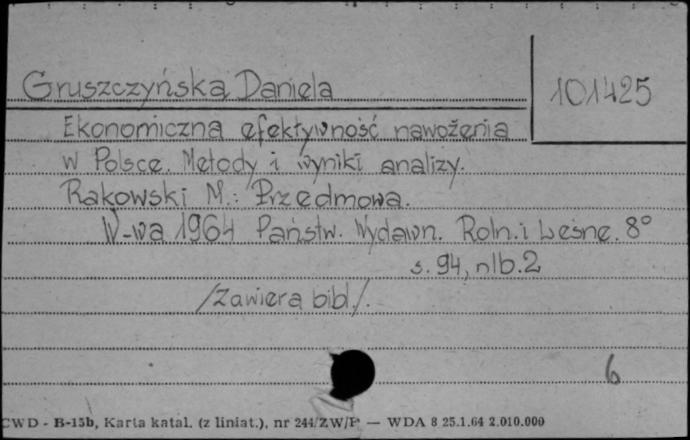 Gruszczyńska Daniela
101425
Ekonomiczna efektywność nawożenia
w Polsce. Metody i wyniki analizy.
Rakowski M.: Przedmowa.
W-wa 1964 Państw. Wydawn. Roln. i Leśne. 8°
s. 94, nlb. 2
/Zawiera bibl./.
6
CWD - B-15b, Karta katal. (z liniat.), nr 244/ZW/P — WDA 8 25.1.64 2.010.000